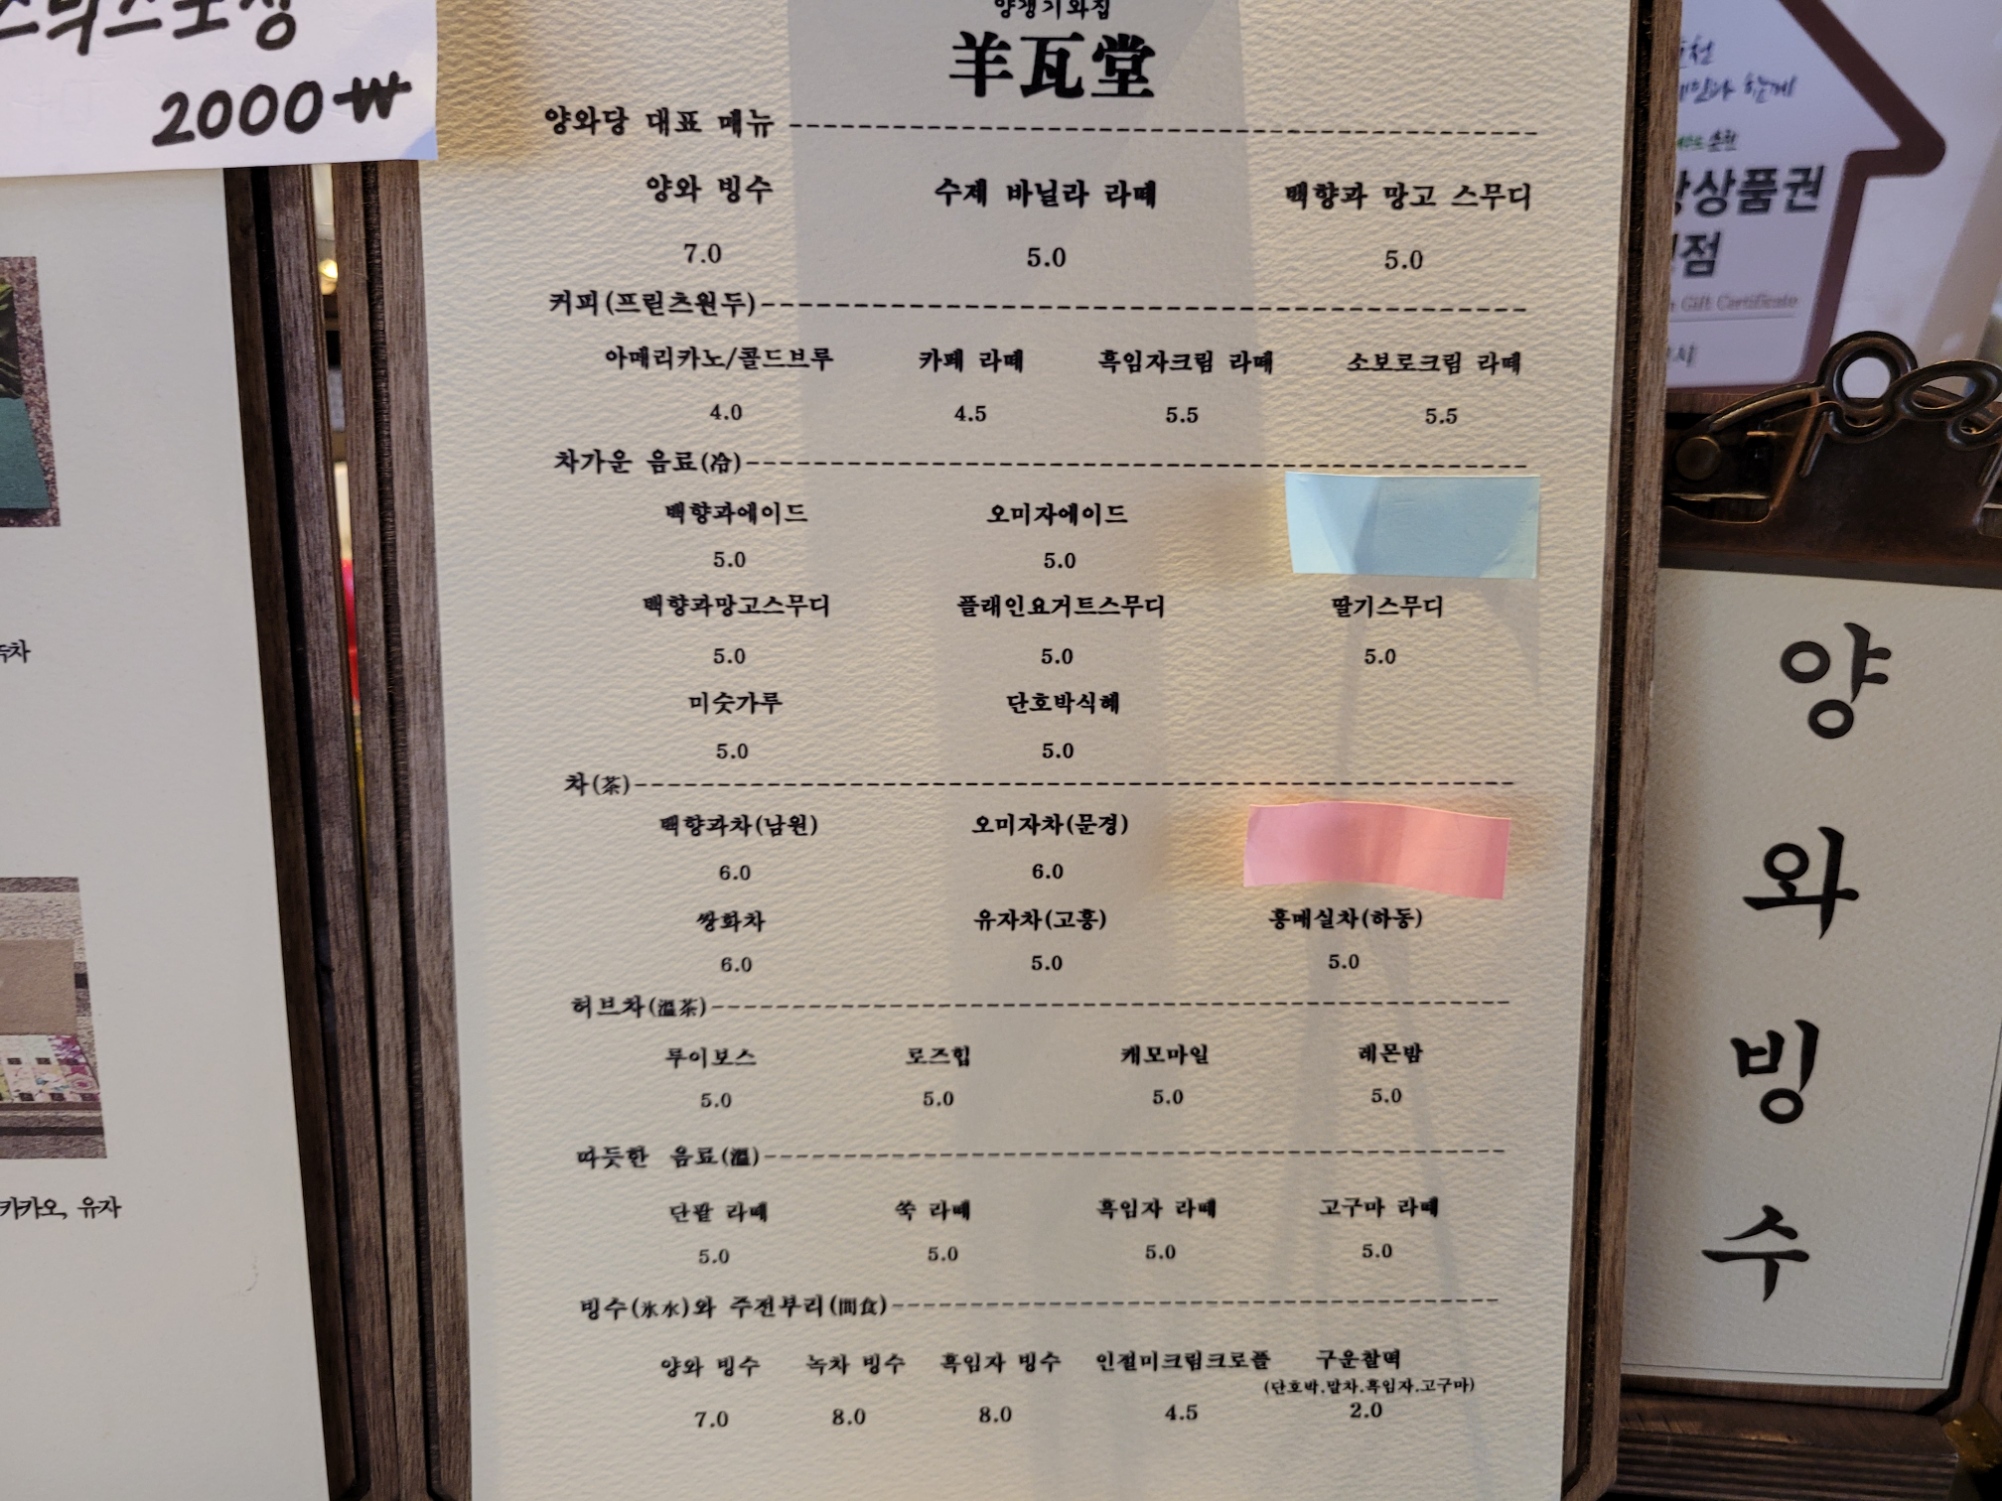 2000₩
양갱기와집
羊瓦堂
양와당 대표 메뉴
양와 빙수 수제 바닐라 라떼 백향과 망고 스무디
7.0 5.0 5.0
커피(프릳츠원두)
아메리카노/콜드브루 카페 라떼 흑임자크림 라떼 소보로크림 라떼
4.0 4.5 5.5 5.5
차가운 음료(冷)
백향과에이드 오미자에이드
5.0 5.0
백향과망고스무디 플래인요거트스무디 딸기스무디
5.0 5.0 5.0
미숫가루 단호박식혜
5.0 5.0
차(茶)
백향과차(남원) 오미자차(문경)
6.0 6.0
쌍화차 유자차(고흥) 홍매실차(하동)
6.0 5.0 5.0
허브차(溫茶)
루이보스 로즈힙 캐모마일 레몬밤
5.0 5.0 5.0 5.0
따듯한 음료(溫)
단팥 라떼 쑥 라떼 흑임자 라떼 고구마 라떼
5.0 5.0 5.0 5.0
빙수(氷水)와 주전부리(間食)
양와 빙수 녹차 빙수 흑임자 빙수 인절미크림크로플 구운찰떡
(단호박.말차.흑임자.고구마)
7.0 8.0 8.0 4.5 2.0
카카오, 유자
상품권
점
Gift Certificate
양
와
빙
수